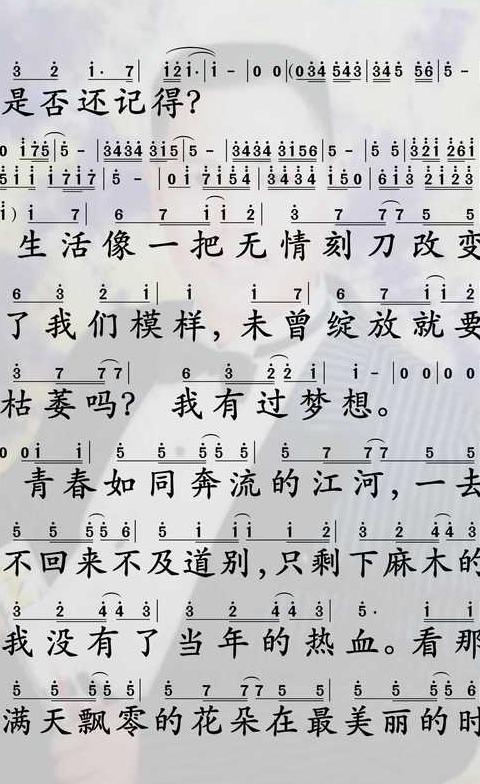 3 2 i· 7| i2i·|i - |0 0|(034 543|345 56|5 -
是否还记得?
0 i75|5 - |3434 315|5 - |3434 3156|5 - |5 5|321 261
51i i7i7|5 - |0i 7i54|3434 i50|6i3 2i23
i) i 7| 6 7 i i 2| 3 7 7 7 5 5
生活像一把无情刻刀改变
6 3 2 i| i i 7| 6 7 i i 2
了我们模样,未曾绽放就要
3 7 7 7| 6 3 2 2 i| i - |0 0|0 0
枯萎吗? 我有过梦想。
0 0i i| 5 5 5 5 5| 5 7 7 7 5 5
青春如同奔流的江河,一去
5 5 5 5 6| 5 i i i i 2| 3 2 4 4 3
不回来不及道别,只剩下麻木的
3 2 4 4 3| 3 2 4 4 3| 5· i i
我没有了当年的热血。看那
5 5 5 5 5| 5 7 7 7 5 5| 5 5 5 5 6
满天飘零的花朵在最美丽的时